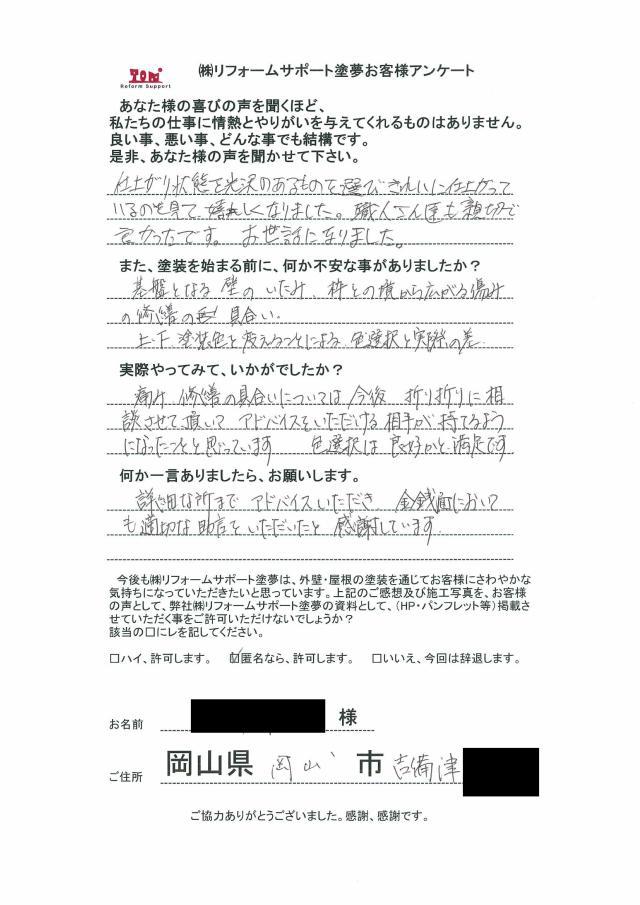 TOM
Reform Support
㈱リフォームサポート塗夢お客様アンケート
あなた様の喜びの声を聞くほど、
私たちの仕事に情熱とやりがいを与えてくれるものはありません。
良い事、悪い事、どんな事でも結構です。
是非、あなた様の声を聞かせて下さい。
仕上がり状態を光沢のあるものを選びきれいに仕上がって
いるのを見て、嬉しくなりました。職人さん達も親切で
良かったです。お世話になりました。
また、塗装を始まる前に、何か不安な事がありましたか？
基盤となる壁のいたみ、枠との境から広がる傷み
の修繕の具合い.
上、下、塗装色を変えることによる色選択と実際の差.
実際やってみて、いかがでしたか？
痛み 修繕の具合いについては今後 折り折りに相
談させて頂いて アドバイスをいただける相手が持てるよう
になったことと思っています 色選択は良好かと満足です
何か一言ありましたら、お願いします。
詳細な所まで アドバイスいただき 金銭面において
も適切な助言をいただいたと感謝しています.
今後も㈱リフォームサポート塗夢は、外壁・屋根の塗装を通じてお客様にさわやかな
気持ちになっていただきたいと思っています。上記のご感想及び施工写真を、お客様
の声として、弊社㈱リフォームサポート塗夢の資料として、（HP・パンフレット等）掲載さ
せていただく事をご許可いただけないでしょうか？
該当の□にレを記してください。
□ハイ、許可します。 ☑匿名なら、許可します。 □いいえ、今回は辞退します。
お名前 様
ご住所 岡山県 岡山 市 吉備津
ご協力ありがとうございました。感謝、感謝です。